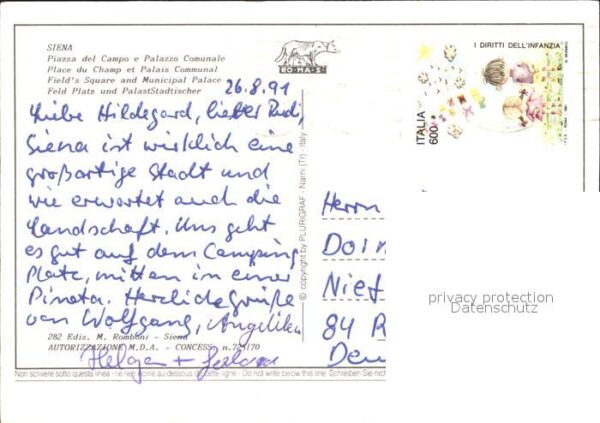 SIENA
Piazza del Campo e Palazzo Comunale
Place du Champ et Palais Communal
Field's Square and Municipal Palace
Feld Platz und PalastStadtischer
RO·MA·S·
26.8.91
Liebe Hildegard, lieber Rudi,
Siena ist wirklich eine
großartige Stadt und
wie erwartet auch die
Landschaft. Uns geht
es gut auf dem Camping
Platz, mitten in einer
Pineta. Herzliche Grüße
von Wolfgang, Angelika
Helga +
282 Ediz. M. Romboni - Siena
AUTORIZZAZIONE M.D.A. - CONCESS. n.725170
Non scrivere sotto questa linea - ne rien écrire au-dessous de cette ligne - Do not write below this line. Schreiben Sie nich
© copyright by PLURIGRAF - Narni (Tr) - Italy
I DIRITTI DELL'INFANZIA
ITALIA
600
Herrn
Doin
Nief
84 R
Deu
privacy protection
Datenschutz